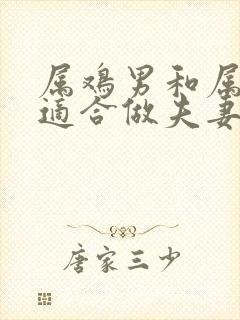 属鸡男和属
适合做夫妻
唐家三少